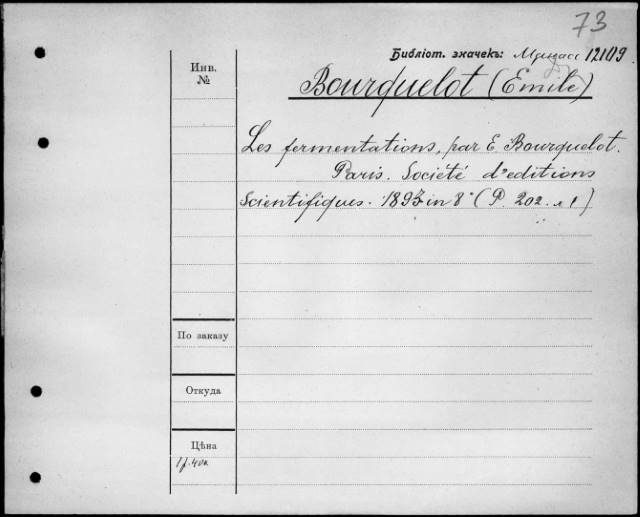 73
Библіот. значекъ: 12109
Инв.
№
Bourquelot (Emile)
Les fermentations, par E. Bourquelot.
Paris. Société d'editions
Scientifiques. 1893 in 8° (P. 202. 1)
По заказу
Откуда
Цѣна
1р. 40к